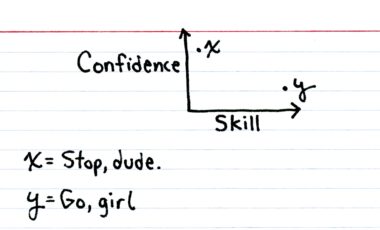 x
Confidence
y
Skill
x = Stop, dude.
y = Go, girl